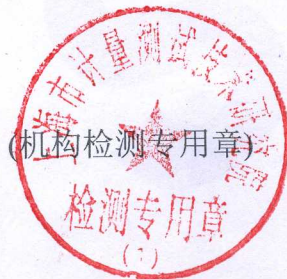 上海市计量测试技术研究院
(机构检测专用章)
检测专用章